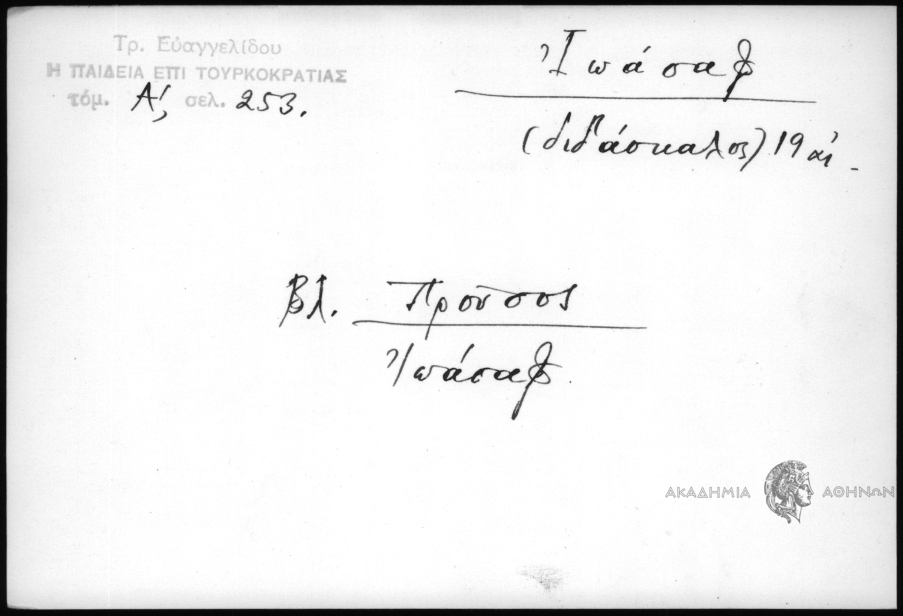 Τρ. Εὐαγγελίδου
Η ΠΑΙΔΕΙΑ ΕΠΙ ΤΟΥΡΚΟΚΡΑΤΙΑΣ
τόμ. Α', σελ. 253.
Ἰωάσαφ
(διδάσκαλος) 19 αἰ.
Βλ. Προῦσος
Ἰωάσαφ.
ΑΚΑΔΗΜΙΑ ΑΘΗΝΩΝ